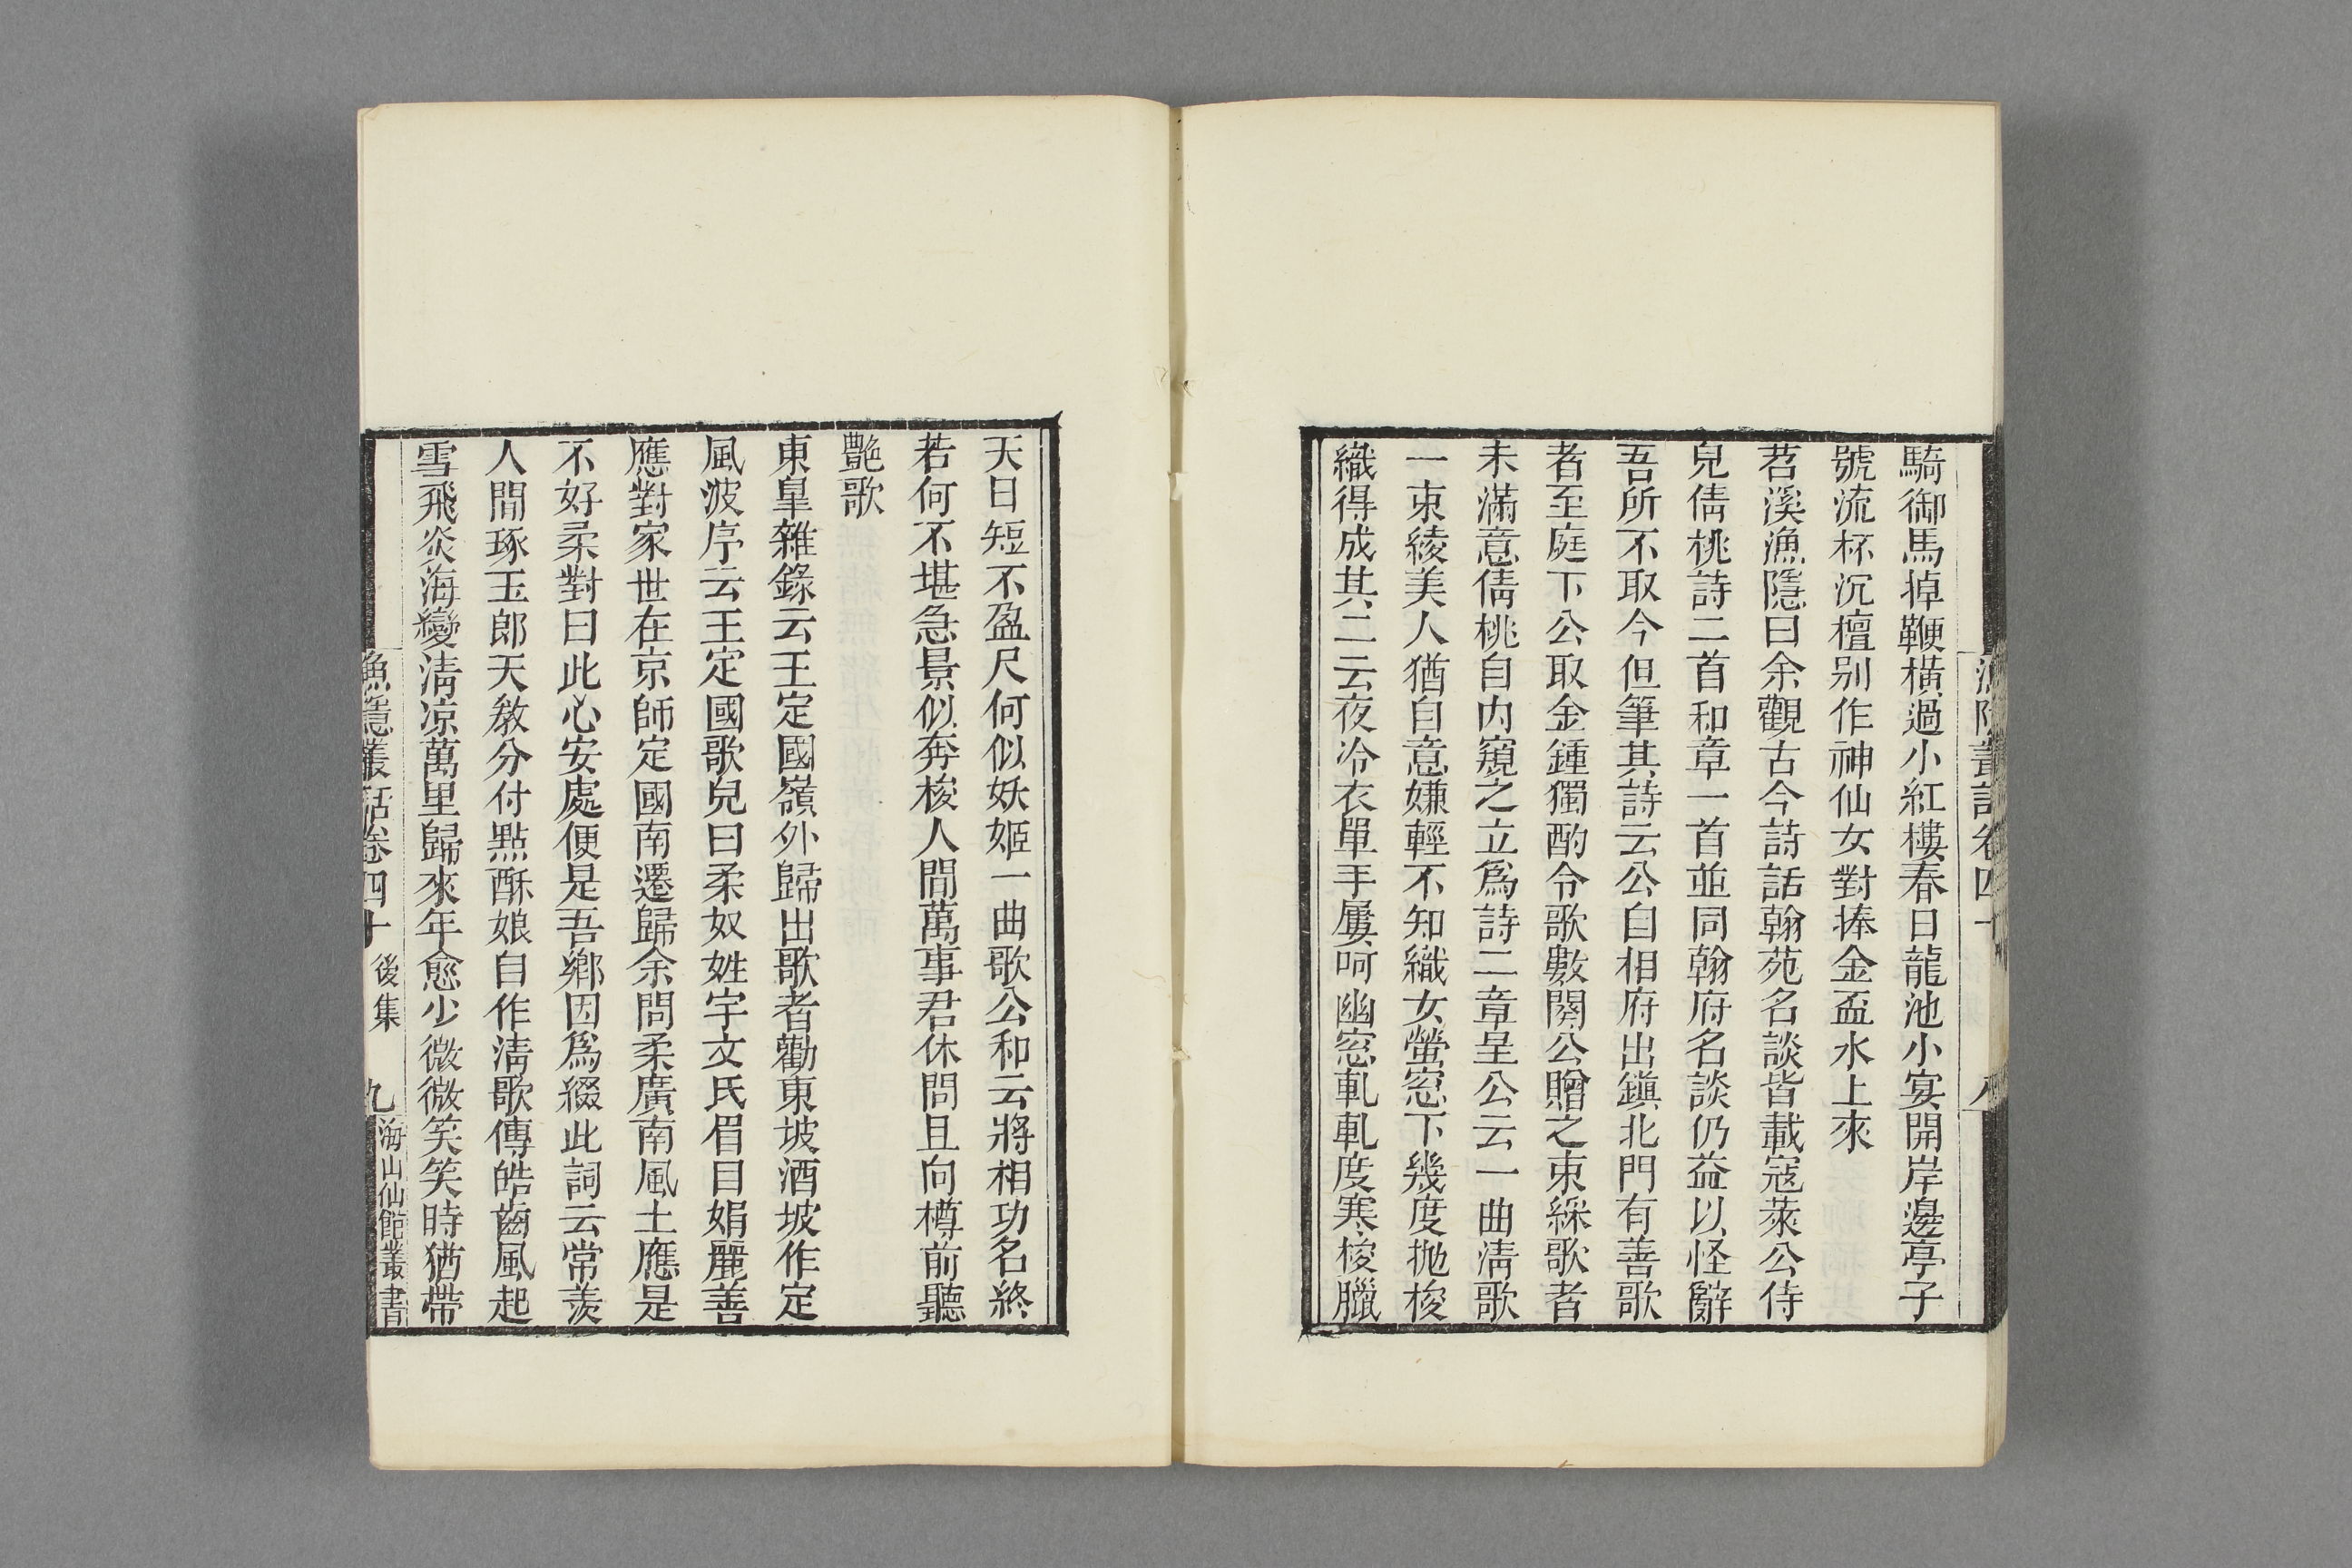 漁隱叢話卷四十 八
騎御馬掉鞭橫過小紅樓春日龍池小宴開岸邊亭子
號流杯沉檀别作神仙女對捧金盃水上來
苕溪漁隱曰余觀古今詩話翰苑名談皆載寇萊公侍
兒倩桃詩二首和章一首並同翰府名談仍益以怪辭
吾所不取今但筆其詩云公自相府出鎭北門有善歌
者至庭下公取金鍾獨酌令歌數闋公贈之束綵歌者
未滿意倩桃自内窺之立爲詩二章呈公云一曲淸歌
一束綾美人猶自意嫌輕不知織女螢窓下幾度抛梭
織得成其二云夜冷衣單手屢呵幽窓軋軋度寒梭臘
天日短不盈尺何似妖姬一曲歌公和云將相功名終
若何不堪急景似奔梭人間萬事君休問且向樽前聽
艷歌
東臯雜錄云王定國嶺外歸出歌者勸東坡酒坡作定
風波序云王定國歌兒曰柔奴姓宇文氏眉目娟麗善
應對家世在京師定國南遷歸余問柔廣南風土應是
不好柔對曰此心安處便是吾鄉因爲綴此詞云常羨
人間琢玉郎天敎分付點酥娘自作淸歌傳皓齒風起
雪飛炎海變淸凉萬里歸來年愈少微微笑笑時猶帶
漁隱叢話卷四十 後集 九 海山仙館叢書